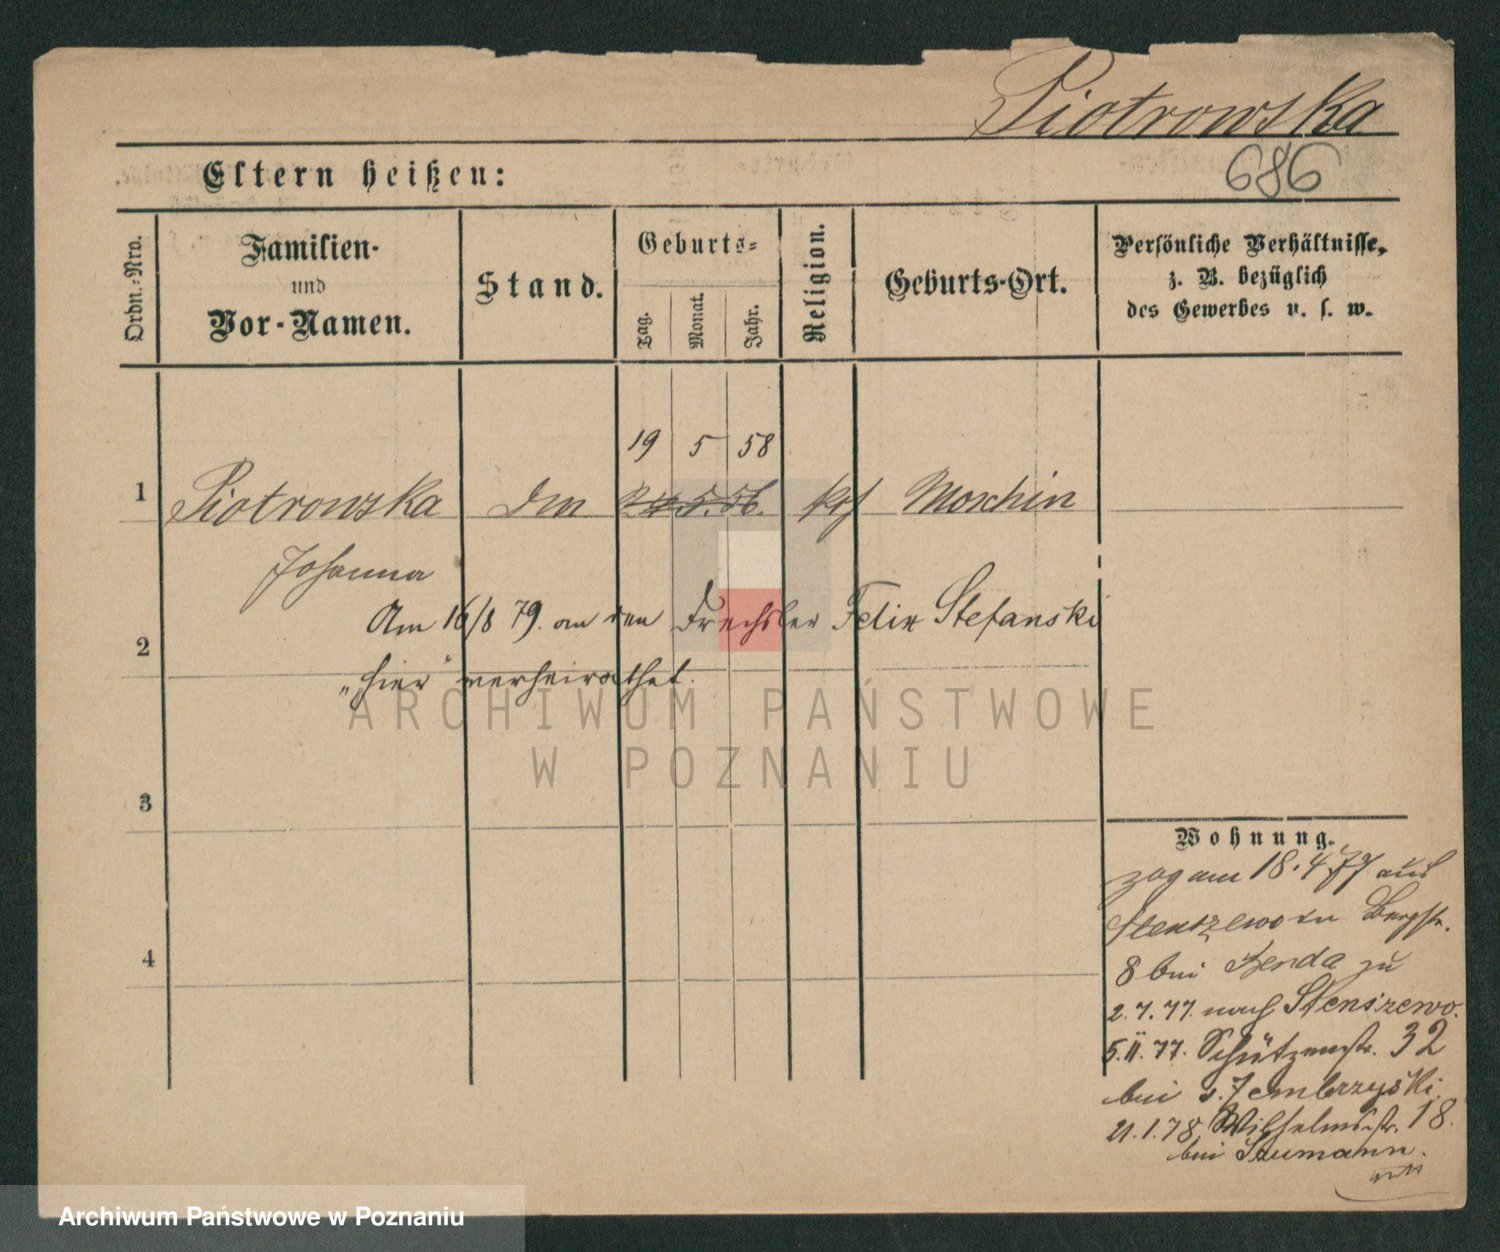 Piotrowska
686
Eltern heißen:
Ordn.-Nro.
Familien-
und
Vor-Namen.
Stand.
Geburts-
Tag.
Monat.
Jahr.
Religion.
Geburts-Ort.
Persönliche Verhältnisse,
z. B. bezüglich
des Gewerbes u. s. w.
19 5 58
1 Piotrowska 5. 56. Moschin
Johanna
Am 16/8 79. an den Drechsler Felix Stefanski
2
„hier" verheirathet.
ARCHIWUM PAŃSTWOWE
W POZNANIU
3
Wohnung.
zog am 18.4.77 aus
Bergstr.
4
8 bei Benda zu
2.7.77. nach Stenszewo.
5.11.77. Schützenstr. 32
bei
21.1.78. Wilhelmsstr. 18.
bei
Archiwum Państwowe w Poznaniu